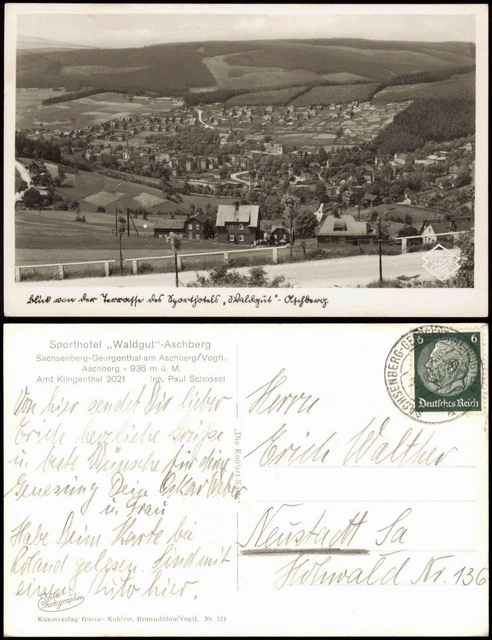 Blick von der Terrasse des Sporthotels „Waldgut"-Aschberg
Sporthotel „Waldgut"-Aschberg
Sachsenberg-Georgenthal am Aschberg/Vogtl.
Aschberg - 936 m ü. M.
Amt Klingenthal 2021 Inh. Paul Schossel
Von hier sendet Dir lieber
Erich herzliche Grüße
u. beste Wünsche für deine
Genesung Dein Oskar
u. Frau
Habe Deine Karte bei
Roland gelesen. Sind mit
einem Auto hier.
Echte Photographie
Kunstverlag Gustav Kohlert, Brunndöbra/Vogtl. Nr. 124
SACHSENBERG-GEORGEN
6 6
Deutsches Reich
Herrn
Erich Walther
Neustadt Sa
Hohwald Nr. 136